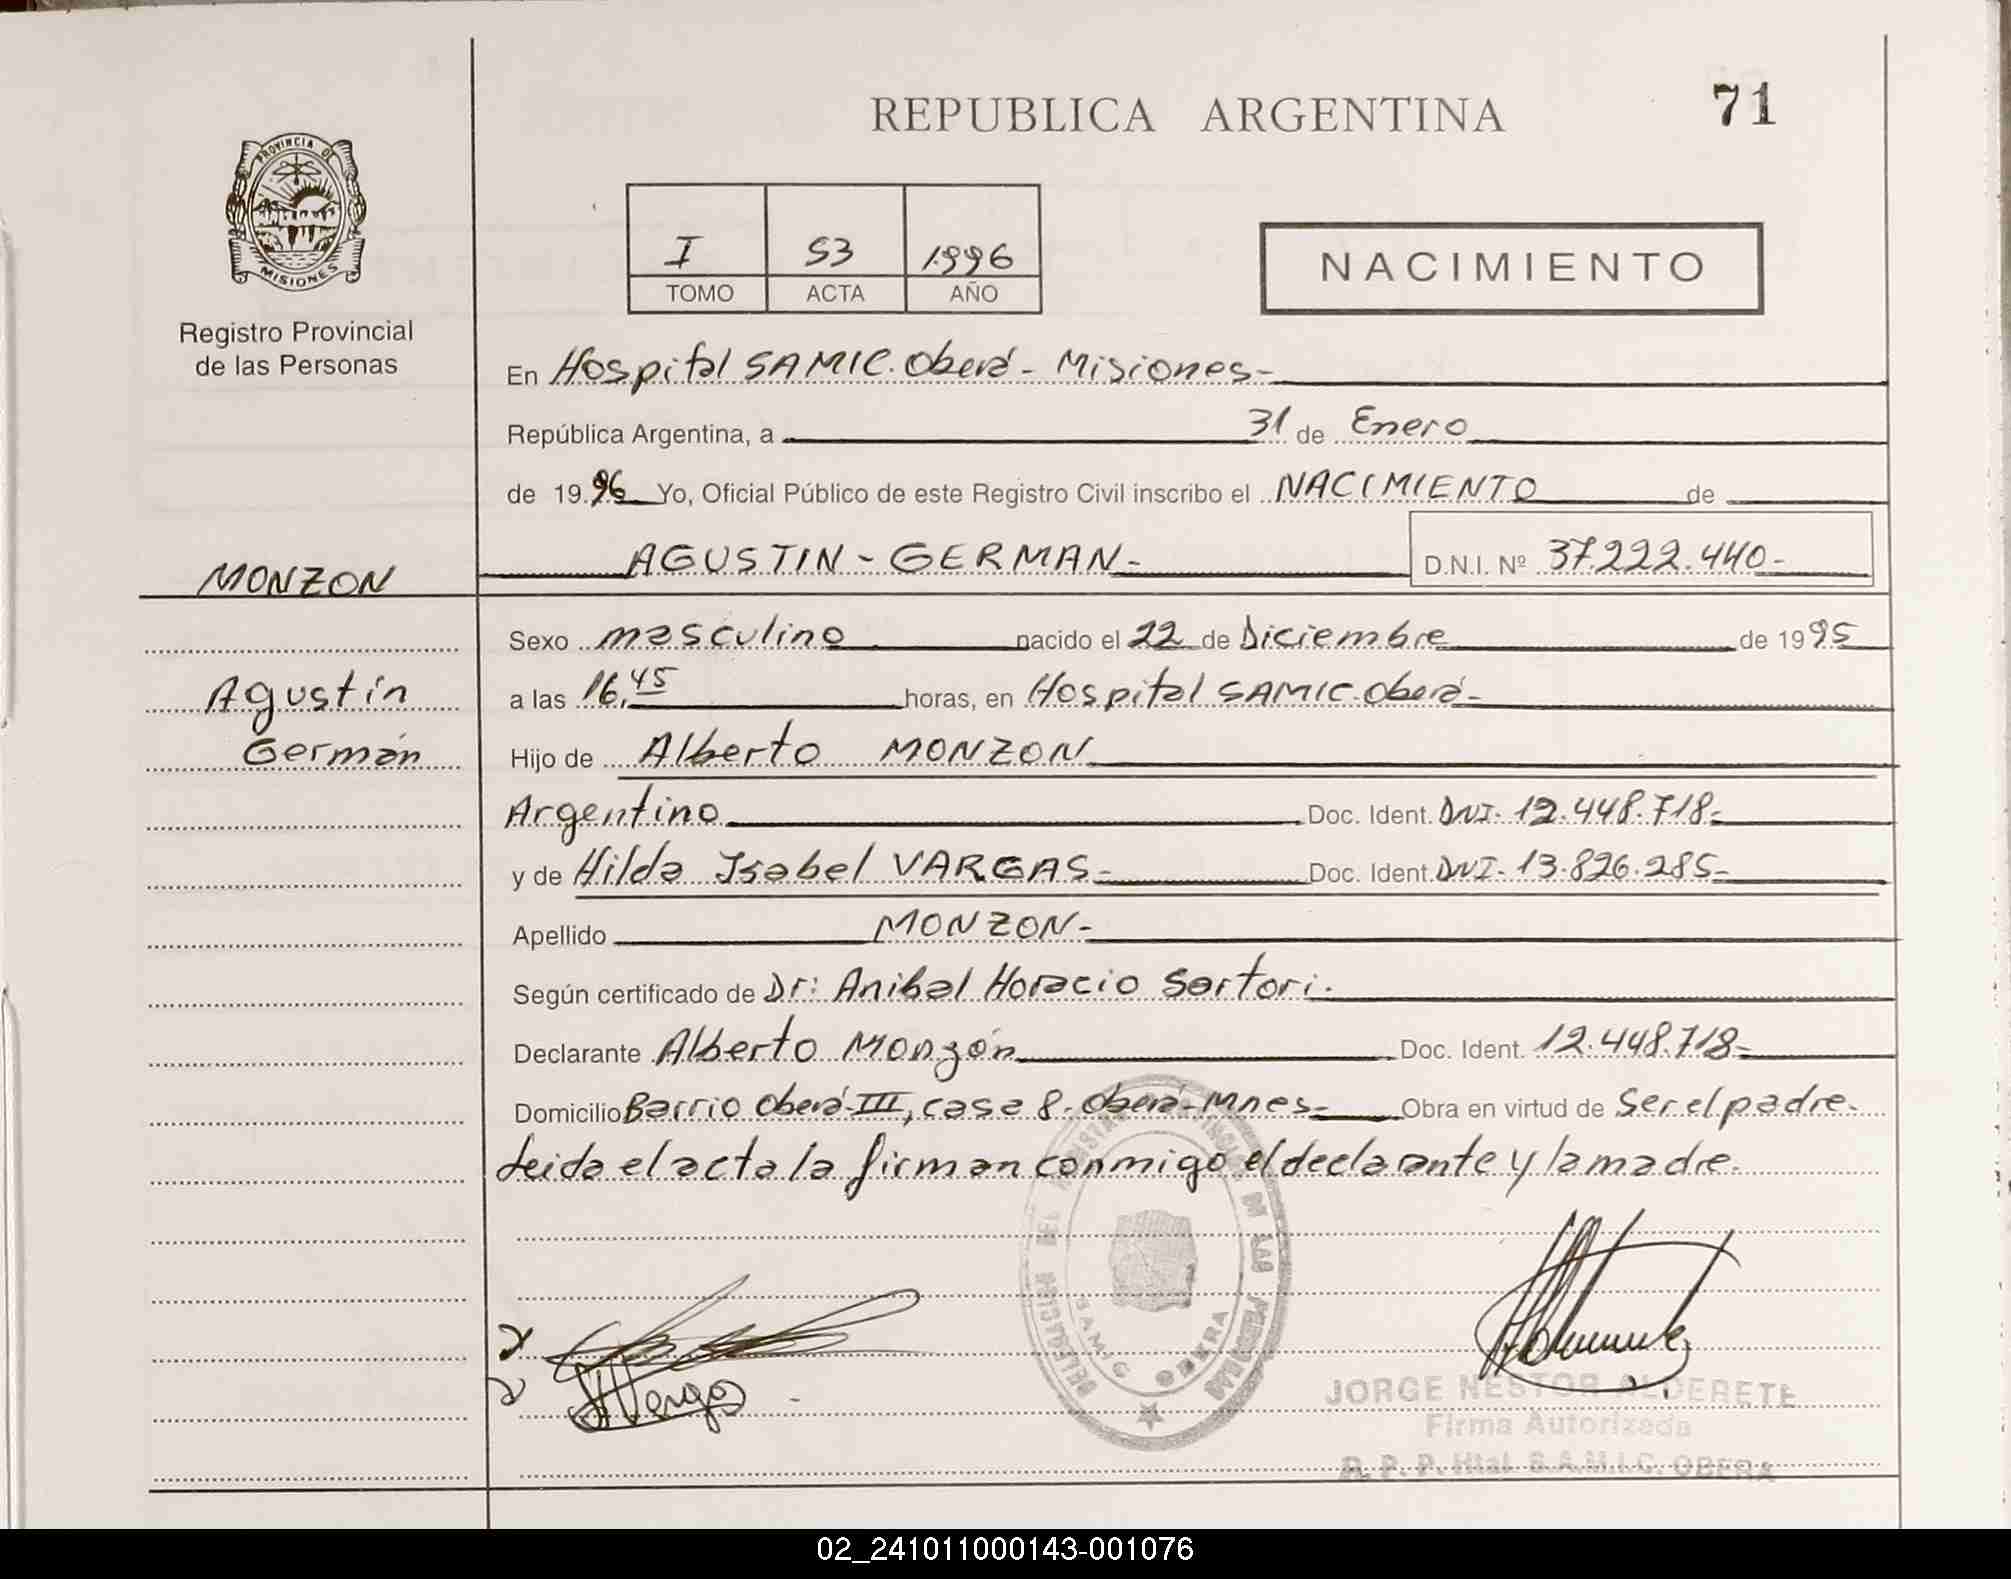 REPUBLICA ARGENTINA
71
PROVINCIA DE
MISIONES
Registro Provincial
de las Personas
I 53 1996
TOMO ACTA AÑO
NACIMIENTO
En Hospital SAMIC. Oberá - Misiones-
República Argentina, a 31 de Enero
de 19.96 Yo, Oficial Público de este Registro Civil inscribo el NACIMIENTO de
MONZON
AGUSTIN - GERMAN-
D.N.I. Nº 37.222.440-
Sexo masculino nacido el 22 de Diciembre de 1995
Agustín
a las 16,45 horas, en Hospital SAMIC. Oberá-
Germán
Hijo de Alberto MONZON
Argentino Doc. Ident. DNI- 12.448.718-
y de Hilda Isabel VARGAS- Doc. Ident. DNI- 13.826.285-
Apellido MONZON-
Según certificado de Dr: Anibal Horacio Sartori.
Declarante Alberto Monzón Doc. Ident. 12.448.718-
Domicilio Barrio Oberá-III, casa 8- Oberá-Mnes- Obra en virtud de Ser el padre.
Leida el acta la firman conmigo el declarante y la madre.
DE LAS
SAMIC OBERA
JORGE NESTOR ALDERETE
Firma Autorizada
R. P. P. Htal. S.A.M.I.C. OBERA
02_241011000143-001076